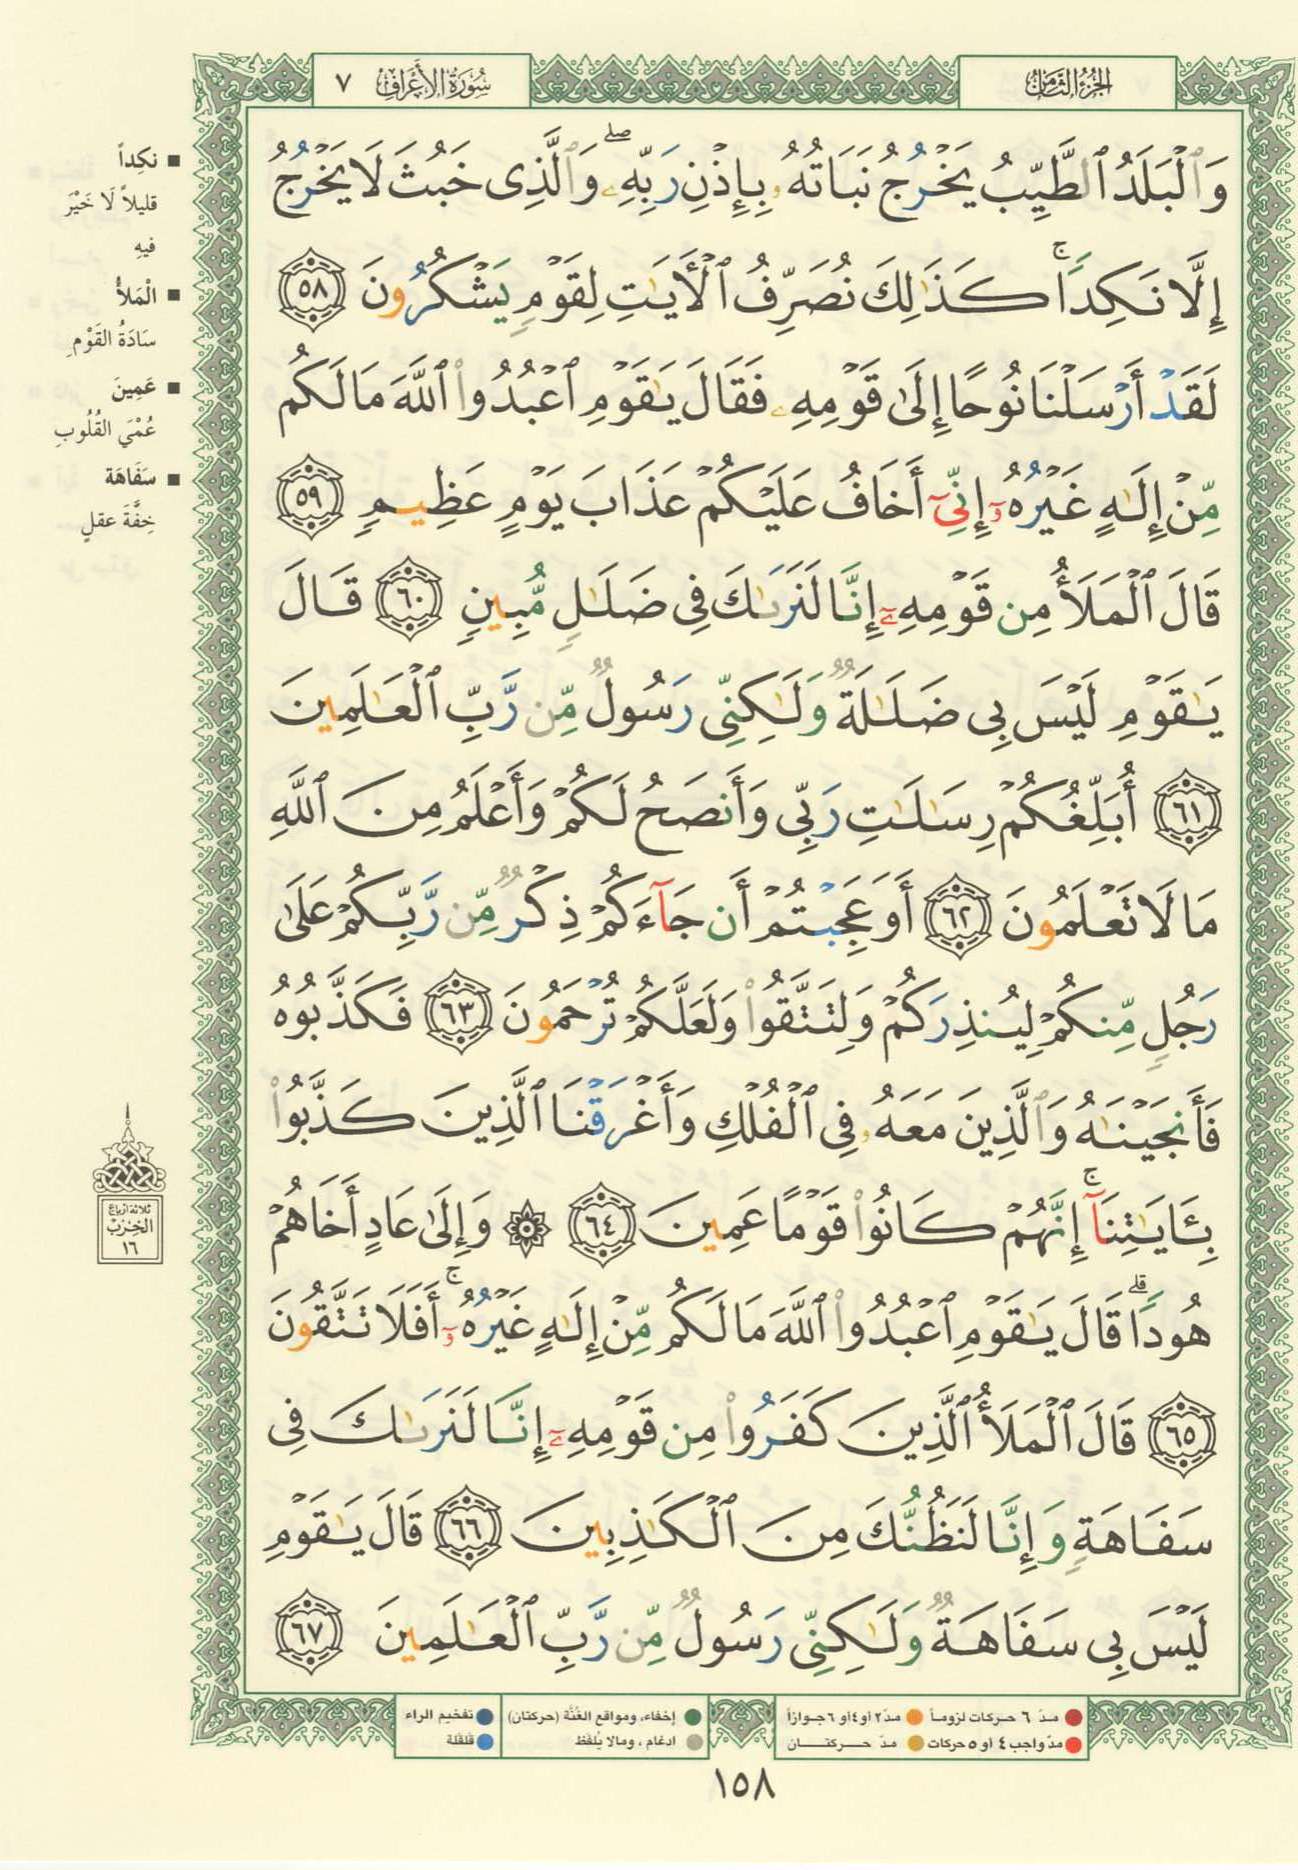 الجزء الثامن
سورة الأعراف ٧
وَٱلْبَلَدُ ٱلطَّيِّبُ يَخْرُجُ نَبَاتُهُۥ بِإِذْنِ رَبِّهِۦ ۖ وَٱلَّذِى خَبُثَ لَا يَخْرُجُ
إِلَّا نَكِدًا ۚ كَذَٰلِكَ نُصَرِّفُ ٱلْأَيَٰتِ لِقَوْمٍ يَشْكُرُونَ ٥٨
لَقَدْ أَرْسَلْنَا نُوحًا إِلَىٰ قَوْمِهِۦ فَقَالَ يَٰقَوْمِ ٱعْبُدُوا۟ ٱللَّهَ مَا لَكُم
مِّنْ إِلَٰهٍ غَيْرُهُۥٓ إِنِّىٓ أَخَافُ عَلَيْكُمْ عَذَابَ يَوْمٍ عَظِيمٍ ٥٩
قَالَ ٱلْمَلَأُ مِن قَوْمِهِۦٓ إِنَّا لَنَرَىٰكَ فِى ضَلَٰلٍ مُّبِينٍ ٦٠ قَالَ
يَٰقَوْمِ لَيْسَ بِى ضَلَٰلَةٌ وَلَٰكِنِّى رَسُولٌ مِّن رَّبِّ ٱلْعَٰلَمِينَ
٦١ أُبَلِّغُكُمْ رِسَٰلَٰتِ رَبِّى وَأَنصَحُ لَكُمْ وَأَعْلَمُ مِنَ ٱللَّهِ
مَا لَا تَعْلَمُونَ ٦٢ أَوَعَجِبْتُمْ أَن جَآءَكُمْ ذِكْرٌ مِّن رَّبِّكُمْ عَلَىٰ
رَجُلٍ مِّنكُمْ لِيُنذِرَكُمْ وَلِتَتَّقُوا۟ وَلَعَلَّكُمْ تُرْحَمُونَ ٦٣ فَكَذَّبُوهُ
فَأَنجَيْنَٰهُ وَٱلَّذِينَ مَعَهُۥ فِى ٱلْفُلْكِ وَأَغْرَقْنَا ٱلَّذِينَ كَذَّبُوا۟
بِـَٔايَٰتِنَآ ۚ إِنَّهُمْ كَانُوا۟ قَوْمًا عَمِينَ ٦٤ ۞ وَإِلَىٰ عَادٍ أَخَاهُمْ
هُودًا ۗ قَالَ يَٰقَوْمِ ٱعْبُدُوا۟ ٱللَّهَ مَا لَكُم مِّنْ إِلَٰهٍ غَيْرُهُۥٓ ۚ أَفَلَا تَتَّقُونَ
٦٥ قَالَ ٱلْمَلَأُ ٱلَّذِينَ كَفَرُوا۟ مِن قَوْمِهِۦٓ إِنَّا لَنَرَىٰكَ فِى
سَفَاهَةٍ وَإِنَّا لَنَظُنُّكَ مِنَ ٱلْكَٰذِبِينَ ٦٦ قَالَ يَٰقَوْمِ
لَيْسَ بِى سَفَاهَةٌ وَلَٰكِنِّى رَسُولٌ مِّن رَّبِّ ٱلْعَٰلَمِينَ ٦٧
■ نكِداً
قليلاً لَا خَيْرَ
فيهِ
■ الْمَلأُ
سَادَةُ القَوْمِ
■ عَمِينَ
عُمْيَ القُلُوبِ
■ سَفَاهَة
خِفَّةَ عقلٍ
ثلاثة أرباع
الحِزب
١٦
مدّ ٦ حركات لزوماً ● مدّ ٢ أو ٤ أو ٦ جوازاً
مدّ واجب ٤ أو ٥ حركات ● مدّ حركتان
إخفاء، ومواقع الغُنَّة (حركتان)
ادغام ، ومالا يُلفَظ
تفخيم الراء
قلقلة
١٥٨